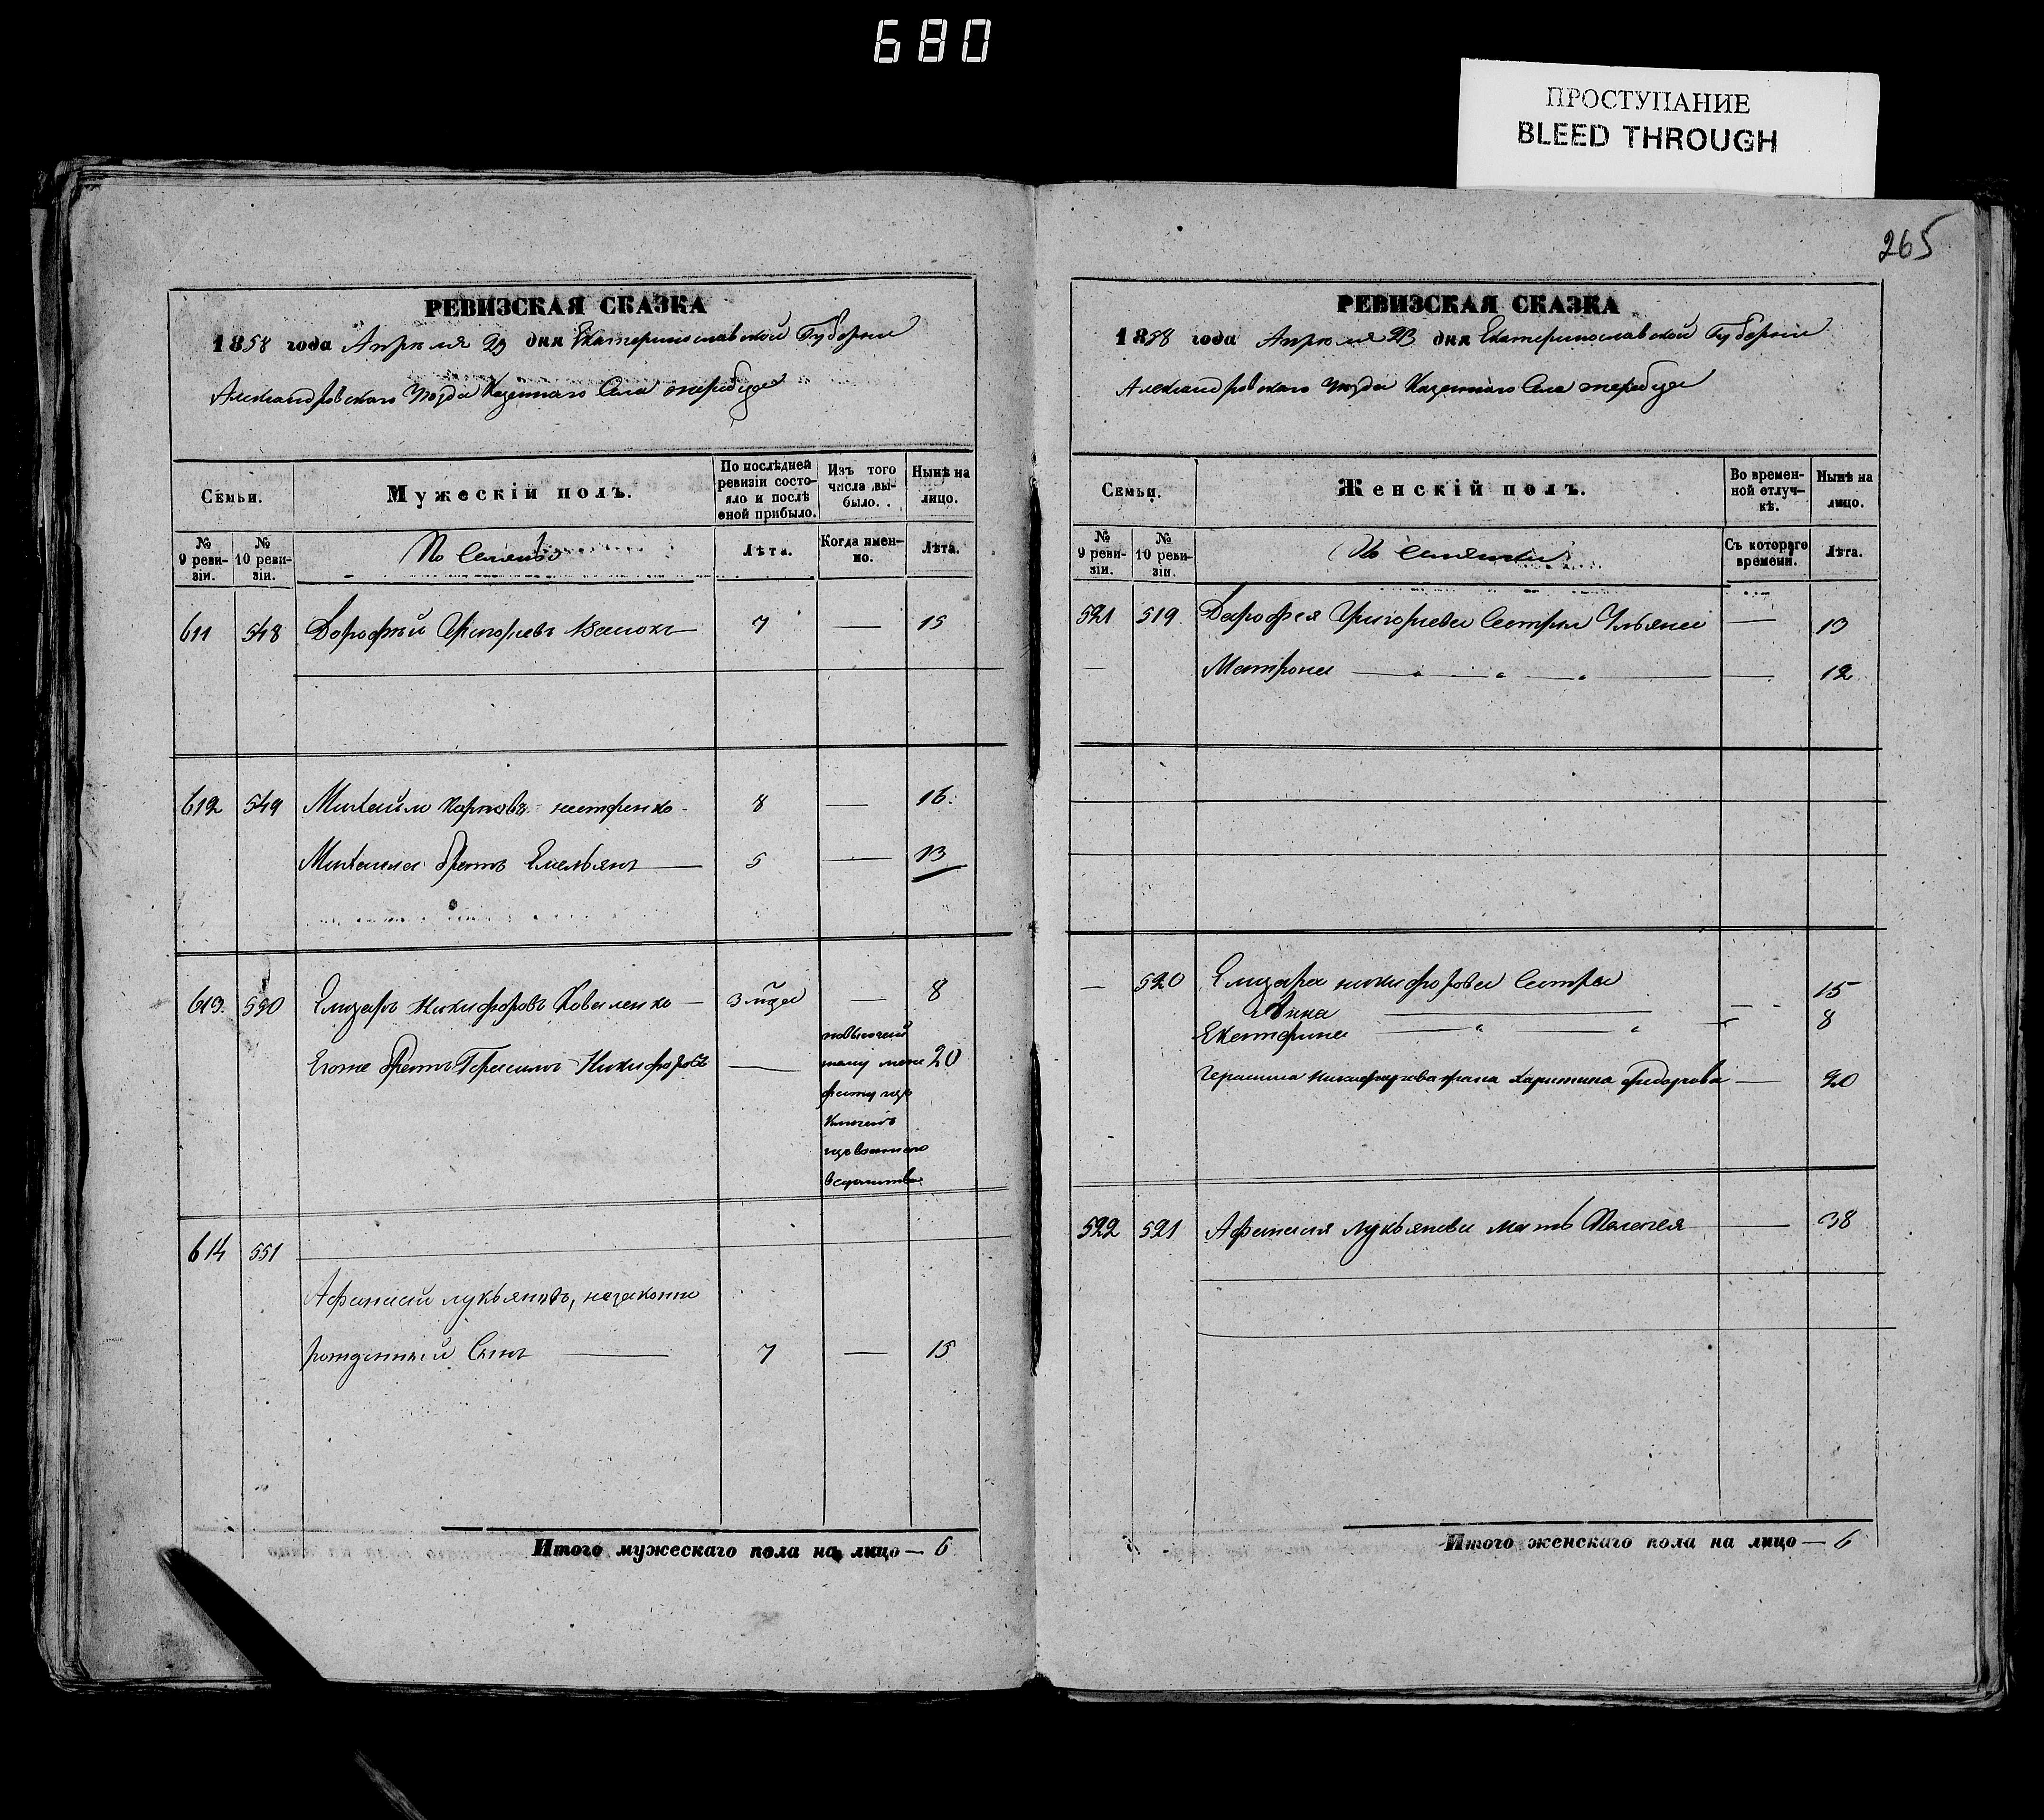 680
ПРОСТУПАНИЕ
BLEED THROUGH
265
РЕВИЗСКАЯ СКАЗКА
1858 года Апреля 23 дня Екатеринославской Губернии
Александровскаго Уезда Казеннаго Села Жеребца
Семьи.
Мужескій полъ.
По послѣдней ревизіи состояло и послѣ оной прибыло.
Изъ того числа выбыло.
Нынѣ на лицо.
№ 9 ревизіи.
№ 10 ревизіи.
Лѣта.
Когда именно.
Лѣта.
611 548 Дорофѣй Григорьевъ 7 — 15
612 549 Михаилъ Карповъ 8 — 16
Михаила братъ Емельянъ — 5 — 13
613. 550 Елизаръ Никифоровъ Коваленко — 3 — 8
Егоже братъ Герасимъ Никифоровъ — 20
614 551
Афанасій Лукьяновъ, незаконно
рожденный Сынъ — 7 — 15
Итого мужескаго пола на лицо — 6
РЕВИЗСКАЯ СКАЗКА
1858 года Апреля 23 дня Екатеринославской Губернии
Александровскаго Уезда Казеннаго Села Жеребца
Семьи.
Женскій полъ.
Во временной отлучкѣ.
Нынѣ на лицо.
№ 9 ревизіи.
№ 10 ревизіи.
Съ котораго времени.
Лѣта.
521 519 Дорофея Григорьева Сестры Ульяна — 13
— Матрона — " — " — " — 12
— 520 Елизара Никифорова Сестры
Анна — 15
Екатерина — " — " — 8
Герасима Никифорова жена Харитина Федорова — 20
522 521 Афанасія Лукьянова мать Пелагея — 38
Итого женскаго пола на лицо — 6